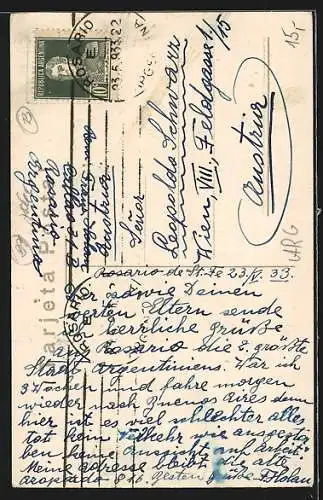 REPUBLICA ARGENTINA
10
ROSARIO
23.5.933.22
15,-
Tarjeta Postal
Señor
Leopoldo Schwarz
Wien, VIII, Feldgasse 1/
/15
Austria
Austria
Rosario
Argentina
ARG
ROSARIO
Rosario de St. Fe 23/V. 33.
Dir sowie Deinen
werten Eltern sende
herrliche grüße
aus Rosário die 2. größte
Stadt Argentiniens. War ich
3 Wochen und fahre morgen
wieder nach Buenos Aires denn
hier ist es viel schlechter alles
tot kein Verkehr wie ausgestor
ben keine Aussicht auf Arbeit.
Meine adresse bleibt die alte